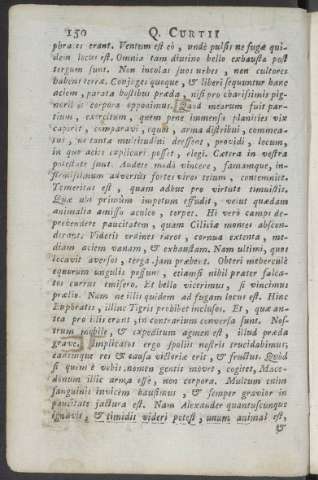 150 Q. CURTII
phrates erant. Ventum est eò, undè pulsis ne fugæ qui-
dem locus est. Omnia tam diutino bello exhausta post
tergum sunt. Non incolas suos urbes, non cultores
habent terræ. Conjuges quoque, & liberi sequuntur hanc
aciem, parata hostibus præda, nisi pro charissimis pig-
noribus corpora opponimus. Quod mearum fuit par-
tium, exercitum, quem pene immensa planities vix
caperet, comparavi, equos, arma distribui, commea-
tus, ne tanta multitudini deessent, providi, locum,
in quo acies explicari posset, elegi. Cætera in vestra
potestate sunt. Audete modò vincere, famamque, in-
firmissimum adversus fortes viros telum, contemnite.
Temeritas est, quam adhuc pro virtute timuistis.
Quæ ubi primùm impetum effudit, velut quædam
animalia amisso aculeo, torpet. Hi verò campi de-
prehendere paucitatem, quam Ciliciæ montes abscon-
derant. Videtis ordines raros, cornua extenta, me-
diam aciem vanam, & exhaustam. Nam ultimi, quos
locavit aversos, terga jam præbent. Obteri mehercule
equorum ungulis possunt, etiamsi nihil præter falca-
tos currus emisero. Et bello vicerimus, si vincimus
prælio. Nam ne illis quidem ad fugam locus est. Hinc
Euphrates, illinc Tigris prohibet inclusos. Et, quæ an-
tea pro illis erant, in contrarium conversa sunt. Nos-
trum mobile, & expeditum agmen est, illud præda
grave. Implicatos ergo spoliis nostris trucidabimus,
eademque res & causa victoriæ erit, & fructus. Quòd
si quem è vobis nomen gentis movet, cogitet, Mace-
donum illic arma esse, non corpora. Multum enim
sanguinis invicem hausimus, & semper gravior in
paucitate jactura est. Nam Alexander quantuscunque
ignavis, & timidis videri potest, unum animal est,
&